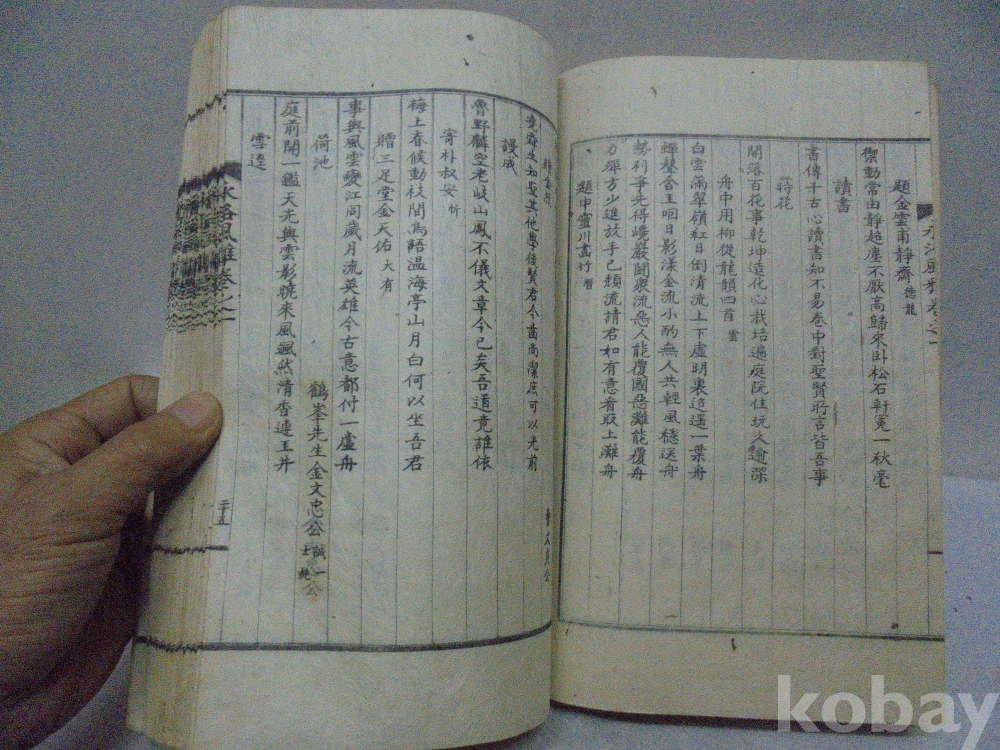 題金雲甫靜齋 德龍
禦動常由靜超塵不厭高歸來卧松石軒冕一秋毫
讀書
書傳千古心讀書知不易卷中對聖賢所言皆吾事
蒔花
開落百花事乾坤造化心栽培遍庭院佳玩久逾深
舟中用柳從龍韻四首 雲
白雲滿翠嶺紅日倒清流上下虛明裏迢遥一葉舟
蟬聲舍玉咽日影漾金流小酌無人共輕風穩送舟
勢利爭先得嶁巖鬪衆流惡人能覆國惡灘能覆舟
力殫方少進放手已頹流請君如有意看取上灘舟
題申靈川畵竹 潛
知是其他學後賢君今啇尚潔庶可以光前
謾成
魯野麟空老岐山鳳不儀文章今已矣吾道竟誰依
寄朴叔安 忻
梅上春候動枝間鳥語温海亭山月白何以坐吾君
贈三足堂金天佑 大有
事與風雲變江同歲月流英雄今古意都付一虛舟
荷池 鶴峯先生金文忠公 誠一 士純
庭前開一鑑天光與雲影曉來風颯然清香連玉井
雲逵
永洛風雅卷之一
二十五
kobay